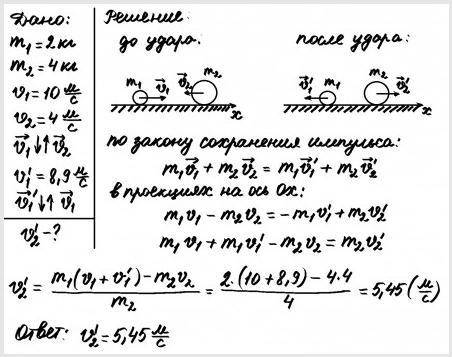 Дано:
m₁ = 2 кг
m₂ = 4 кг
v₁ = 10 м/с
v₂ = 4 м/с
v⃗₁ ↓↑ v⃗₂
v₁′ = 8,9 м/с
v⃗₁′ ↓↑ v⃗₁
v₂′ – ?
Решение:
до удара: после удара:
m₁ v⃗₁ v⃗₂ m₂ x v⃗₁′ m₁ m₂ v⃗₂′ x
по закону сохранения импульса:
m₁v⃗₁ + m₂v⃗₂ = m₁v⃗₁′ + m₂v⃗₂′
в проекциях на ось Ox:
m₁v₁ – m₂v₂ = –m₁v₁′ + m₂v₂′
m₁v₁ + m₁v₁′ – m₂v₂ = m₂v₂′
v₂′ = (m₁(v₁ + v₁′) – m₂v₂)/m₂ = (2·(10 + 8,9) – 4·4)/4 = 5,45 (м/с)
Ответ: v₂′ = 5,45 м/с